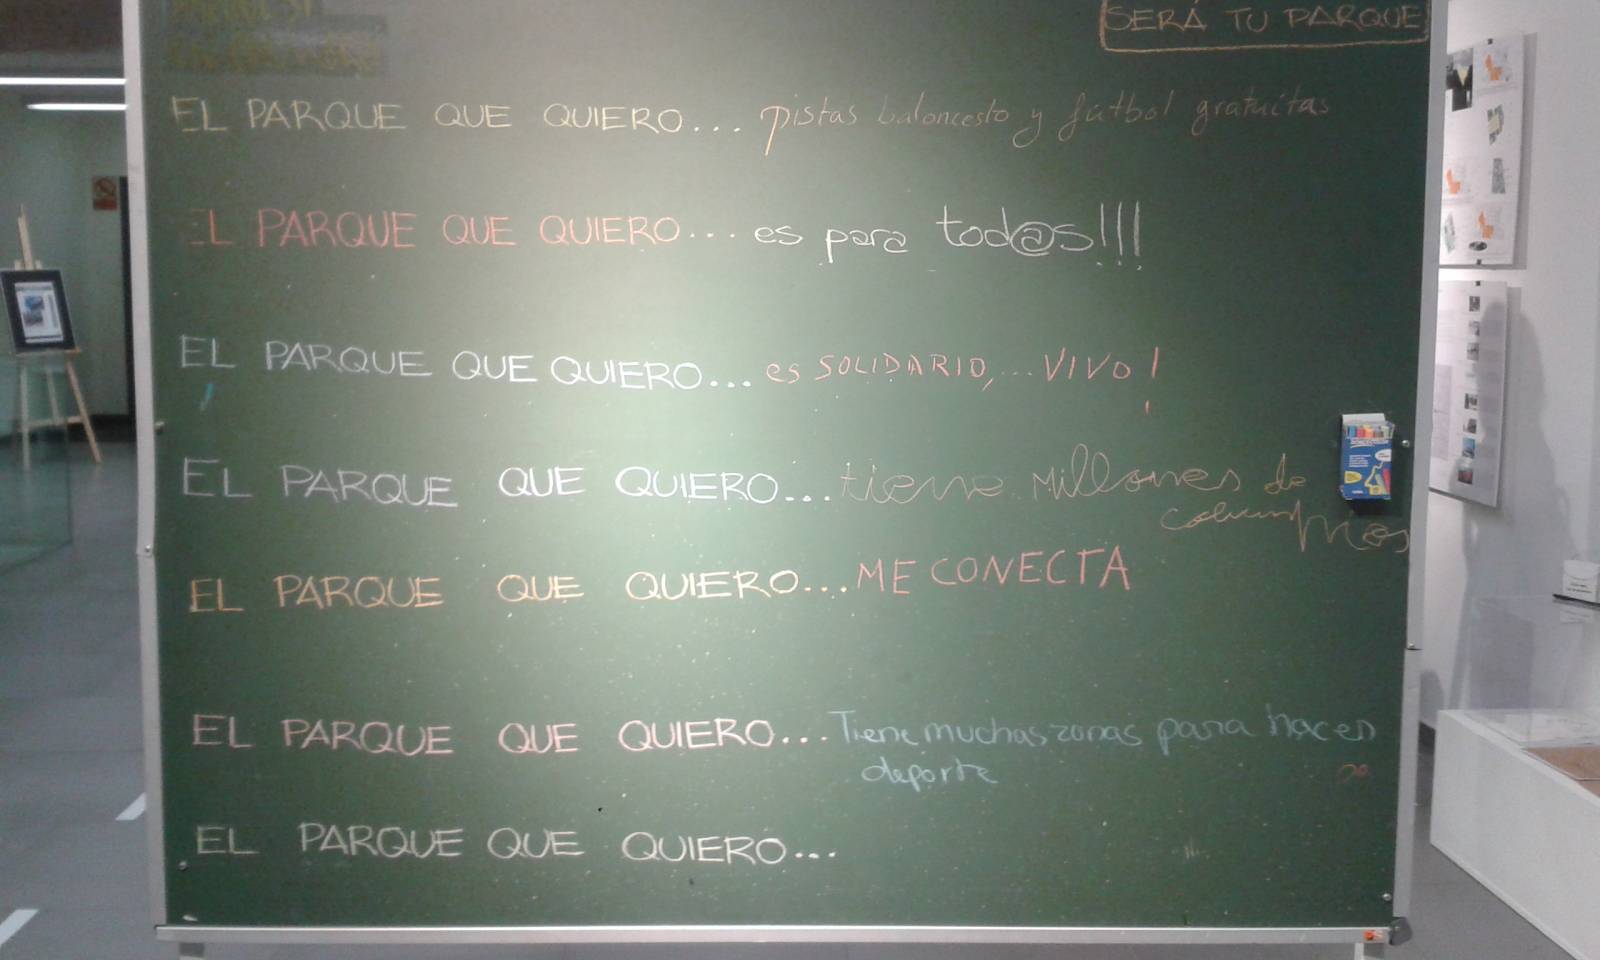 SERÁ TU PARQUE
EL PARQUE QUE QUIERO... pistas baloncesto y fútbol gratuitas
EL PARQUE QUE QUIERO... es para tod@s!!!
EL PARQUE QUE QUIERO... es SOLIDARIO,... VIVO!
EL PARQUE QUE QUIERO... tiene millones de
columpios
EL PARQUE QUE QUIERO... ME CONECTA
EL PARQUE QUE QUIERO... Tiene muchas zonas para hacer
deporte
EL PARQUE QUE QUIERO...